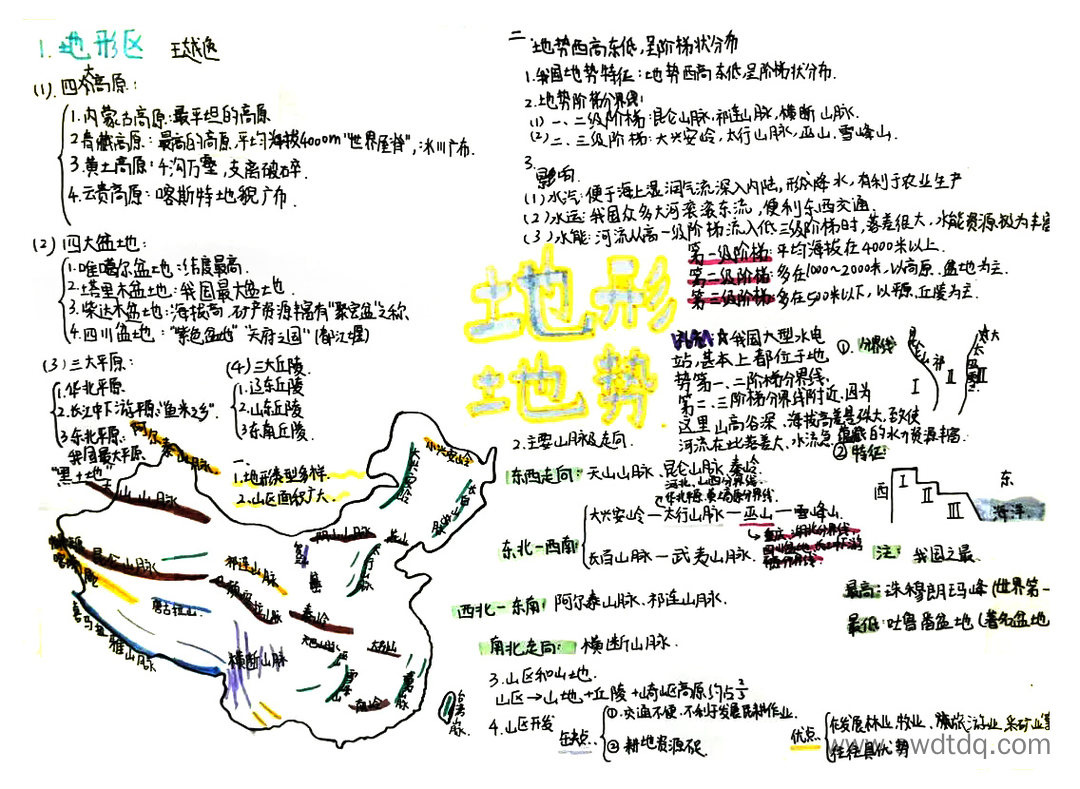 1. 地形区
(1). 四大高原:
1.内蒙古高原:最平坦的高原
2.青藏高原:最高的高原,平均海拔4000m"世界屋脊",冰川广布.
3.黄土高原:千沟万壑,支离破碎.
4.云贵高原:喀斯特地貌广布.
(2) 四大盆地:
1.准噶尔盆地:纬度最高.
2.塔里木盆地:我国最大盆地.
3.柴达木盆地:海拔高,矿产资源丰富有"聚宝盆"之称
4.四川盆地:"紫色盆地""天府之国"(都江堰)
(3) 三大平原:
1.华北平原.
2.长江中下游平原:"鱼米之乡".
3.东北平原:
我国最大平原
"黑土地"
(4) 三大丘陵.
1.辽东丘陵
2.山东丘陵
3.东南丘陵.
一、
1.地形类型多样.
2.山区面积广大.
阿尔泰山脉
天山山脉
昆仑山脉
祁连山脉
唐古拉山
喜马拉雅山脉
横断山脉
秦岭
阴山山脉
燕山
太行山脉
大兴安岭
小兴安岭
长白山脉
大巴山脉
大别山
南岭
台湾山脉.
地形
地势
二. 地势西高东低,呈阶梯状分布
1.我国地势特征:地势西高东低,呈阶梯状分布.
2.地势阶梯分界线:
(1) 一、二级阶梯:昆仑山脉.祁连山脉,横断山脉.
(2) 二、三级阶梯:大兴安岭,太行山脉,巫山.雪峰山.
3.影响.
(1) 水汽:便于海上湿润气流深入内陆,形成降水,有利于农业生产
(2) 水运:我国众多大河滚滚东流,便利东西交通.
(3) 水能:河流从高一级阶梯流入低一级阶梯时,落差很大,水能资源极为丰富
第一级阶梯:平均海拔在4000米以上.
第二级阶梯:多在1000~2000米,以高原.盆地为主.
第三级阶梯:多在500米以下,以平原.丘陵为主.
☆我国大型水电
站,基本上都位于地
势第一、二阶梯分界线.
第二、三阶梯分界线附近,因为
这里山高谷深、海拔高差悬殊大,致使
河流在此落差大、水流急,蕴藏的水力资源丰富.
①.分界线
I
II
III
② 特征:
西
I
II
III
东
海洋
2.主要山脉及走向.
东西走向:天山山脉.昆仑山脉.秦岭
东北—西南
大兴安岭—太行山脉—巫山—雪峰山.
长白山脉—武夷山脉.
西北—东南:阿尔泰山脉.祁连山脉.
南北走向:横断山脉.
注:我国之最.
最高:珠穆朗玛峰(世界第一
最低:吐鲁番盆地(著名盆地
3.山区和山地.
山区→山地+丘陵+崎岖高原约占2/3
4.山区开发
缺点
①.交通不便.不利于发展民耕作业.
② 耕地资源少
优点
在发展林业、牧业、旅游业,采矿业等
往往具优势
www.wdtdq.com